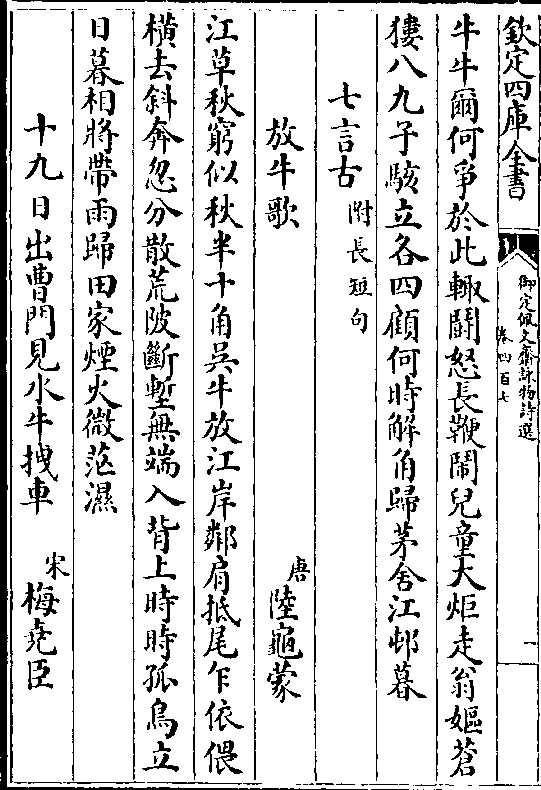 欽定四庫全書
御定佩文齋詠物詩選
卷四百七
一
牛牛爾何爭於此輙鬬怒長鞭鬧兒童大炬走翁嫗蒼
獿八九子駭立各四顧何時解角歸茅舍江邨暮
七言古 附長短句
放牛歌 唐 陸龜蒙
江草秋窮似秋半十角吳牛放江岸鄰肩抵尾乍依偎
橫去斜奔忽分散荒陂斷塹無端入背上時時孤鳥立
日暮相將帶雨歸田家煙火微茫濕
十九日出曹門見水牛拽車 宋 梅堯臣